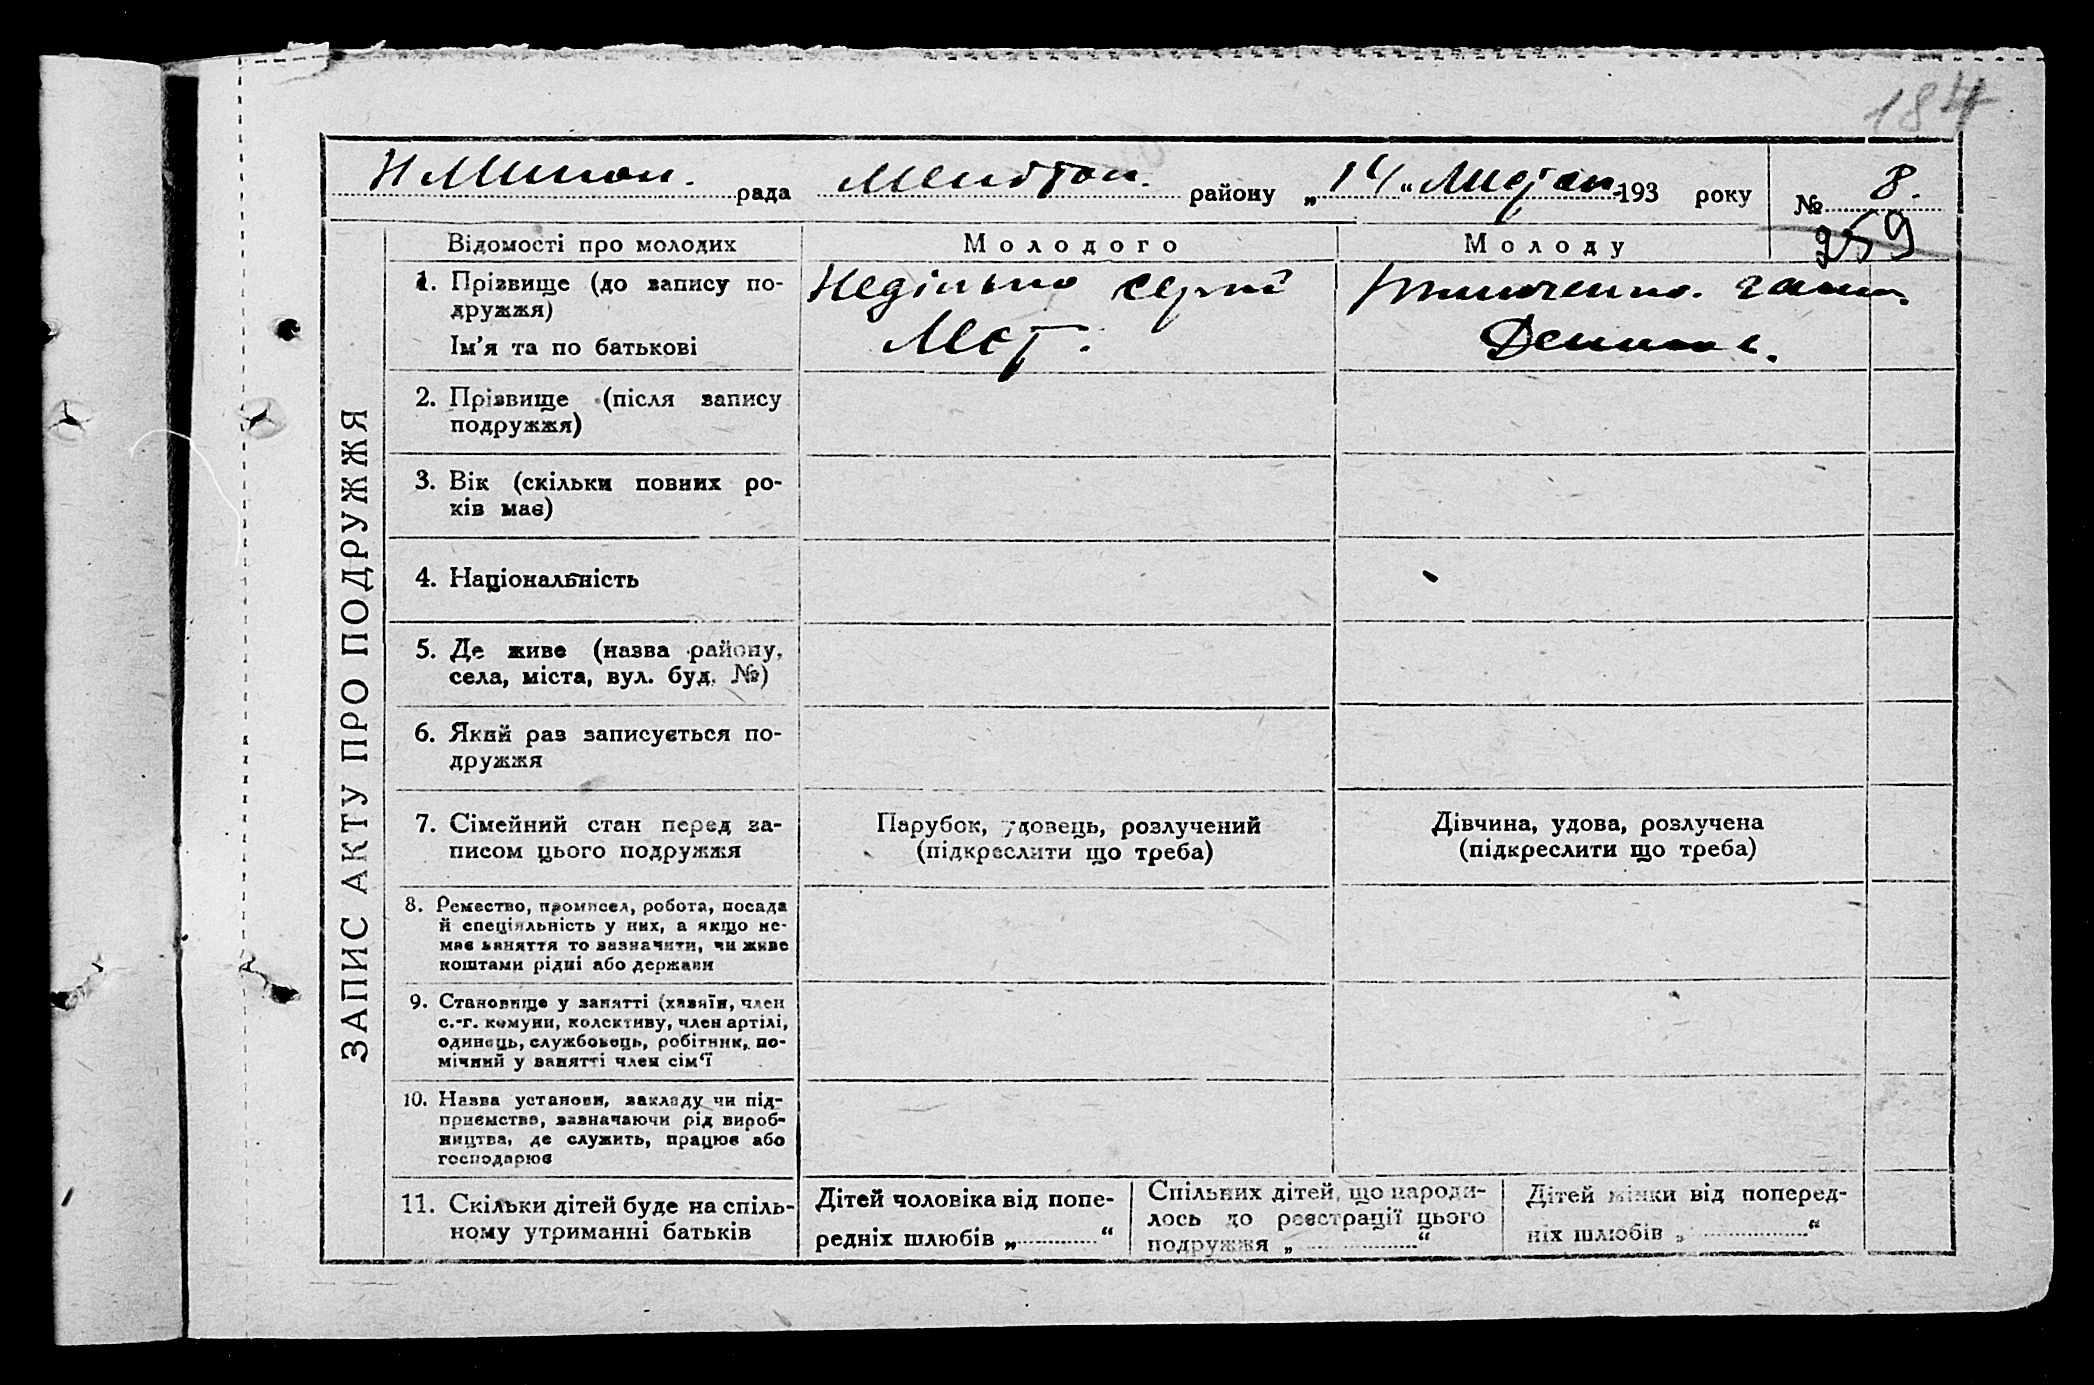 184
рада району „14“ 193 року № 8.
259
ЗАПИС АКТУ ПРО ПОДРУЖЖЯ
Відомості про молодих Молодого Молоду
1. Прізвище (до запису по-
дружжя)
Ім'я та по батькові
Неділько Сергій
Мєт.
Ганна
Денисов.
2. Прізвище (після запису
подружжя)
3. Вік (скільки повних ро-
ків має)
4. Національність
5. Де живе (назва району,
села, міста, вул. буд. №)
6. Який раз записується по-
дружжя
7. Сімейний стан перед за-
писом цього подружжя
Парубок, удовець, розлучений
(підкреслити що треба)
Дівчина, удова, розлучена
(підкреслити що треба)
8. Ремество, промисел, робота, посада
й спеціяльність у них, а якщо не-
має заняття то зазначити, чи живе
коштами рідні або держави
9. Становище у занятті (хазяїн, член
с.-г. комуни, колективу, член артілі,
одинець, службовець, робітник, по-
мічний у занятті член сім'ї
10. Назва установи, закладу чи під-
приємства, зазначаючи рід вироб-
ництва, де служить, працює або
господарює
11. Скільки дітей буде на спіль-
ному утриманні батьків
Дітей чоловіка від попе-
редніх шлюбів „ “
Спільних дітей, що народи-
лось до реєстрації цього
подружжя „ “
Дітей жінки від поперед-
ніх шлюбів „ “